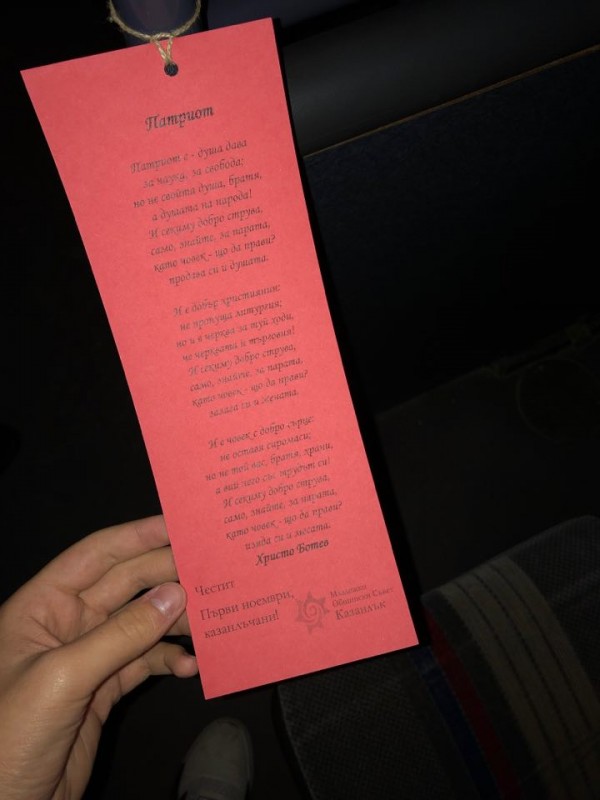 Патриот
Патриот е - душа дава
за наука, за свобода;
но не свойта душа, братя,
а душата на народа!
И секиму добро струва,
само, знайте, за парата,
като човек - що да прави?
продава си и душата.
И е добър християнин:
не пропуща литургия;
но и в черква за туй ходи,
че черквата й търговия!
И секиму добро струва,
само, знайте, за парата,
като човек - що да прави?
залага си и жената.
И е човек с добро сърце:
не оставя сиромаси;
но не той вас, братя, храни,
а вий него със трудът си!
И секиму добро струва,
само, знайте, за парата,
като човек - що да прави?
изяда си и месата.
Христо Ботев
Честит
Първи ноември,
казанлъчани!
Младежки
Общински Съвет
Казанлък